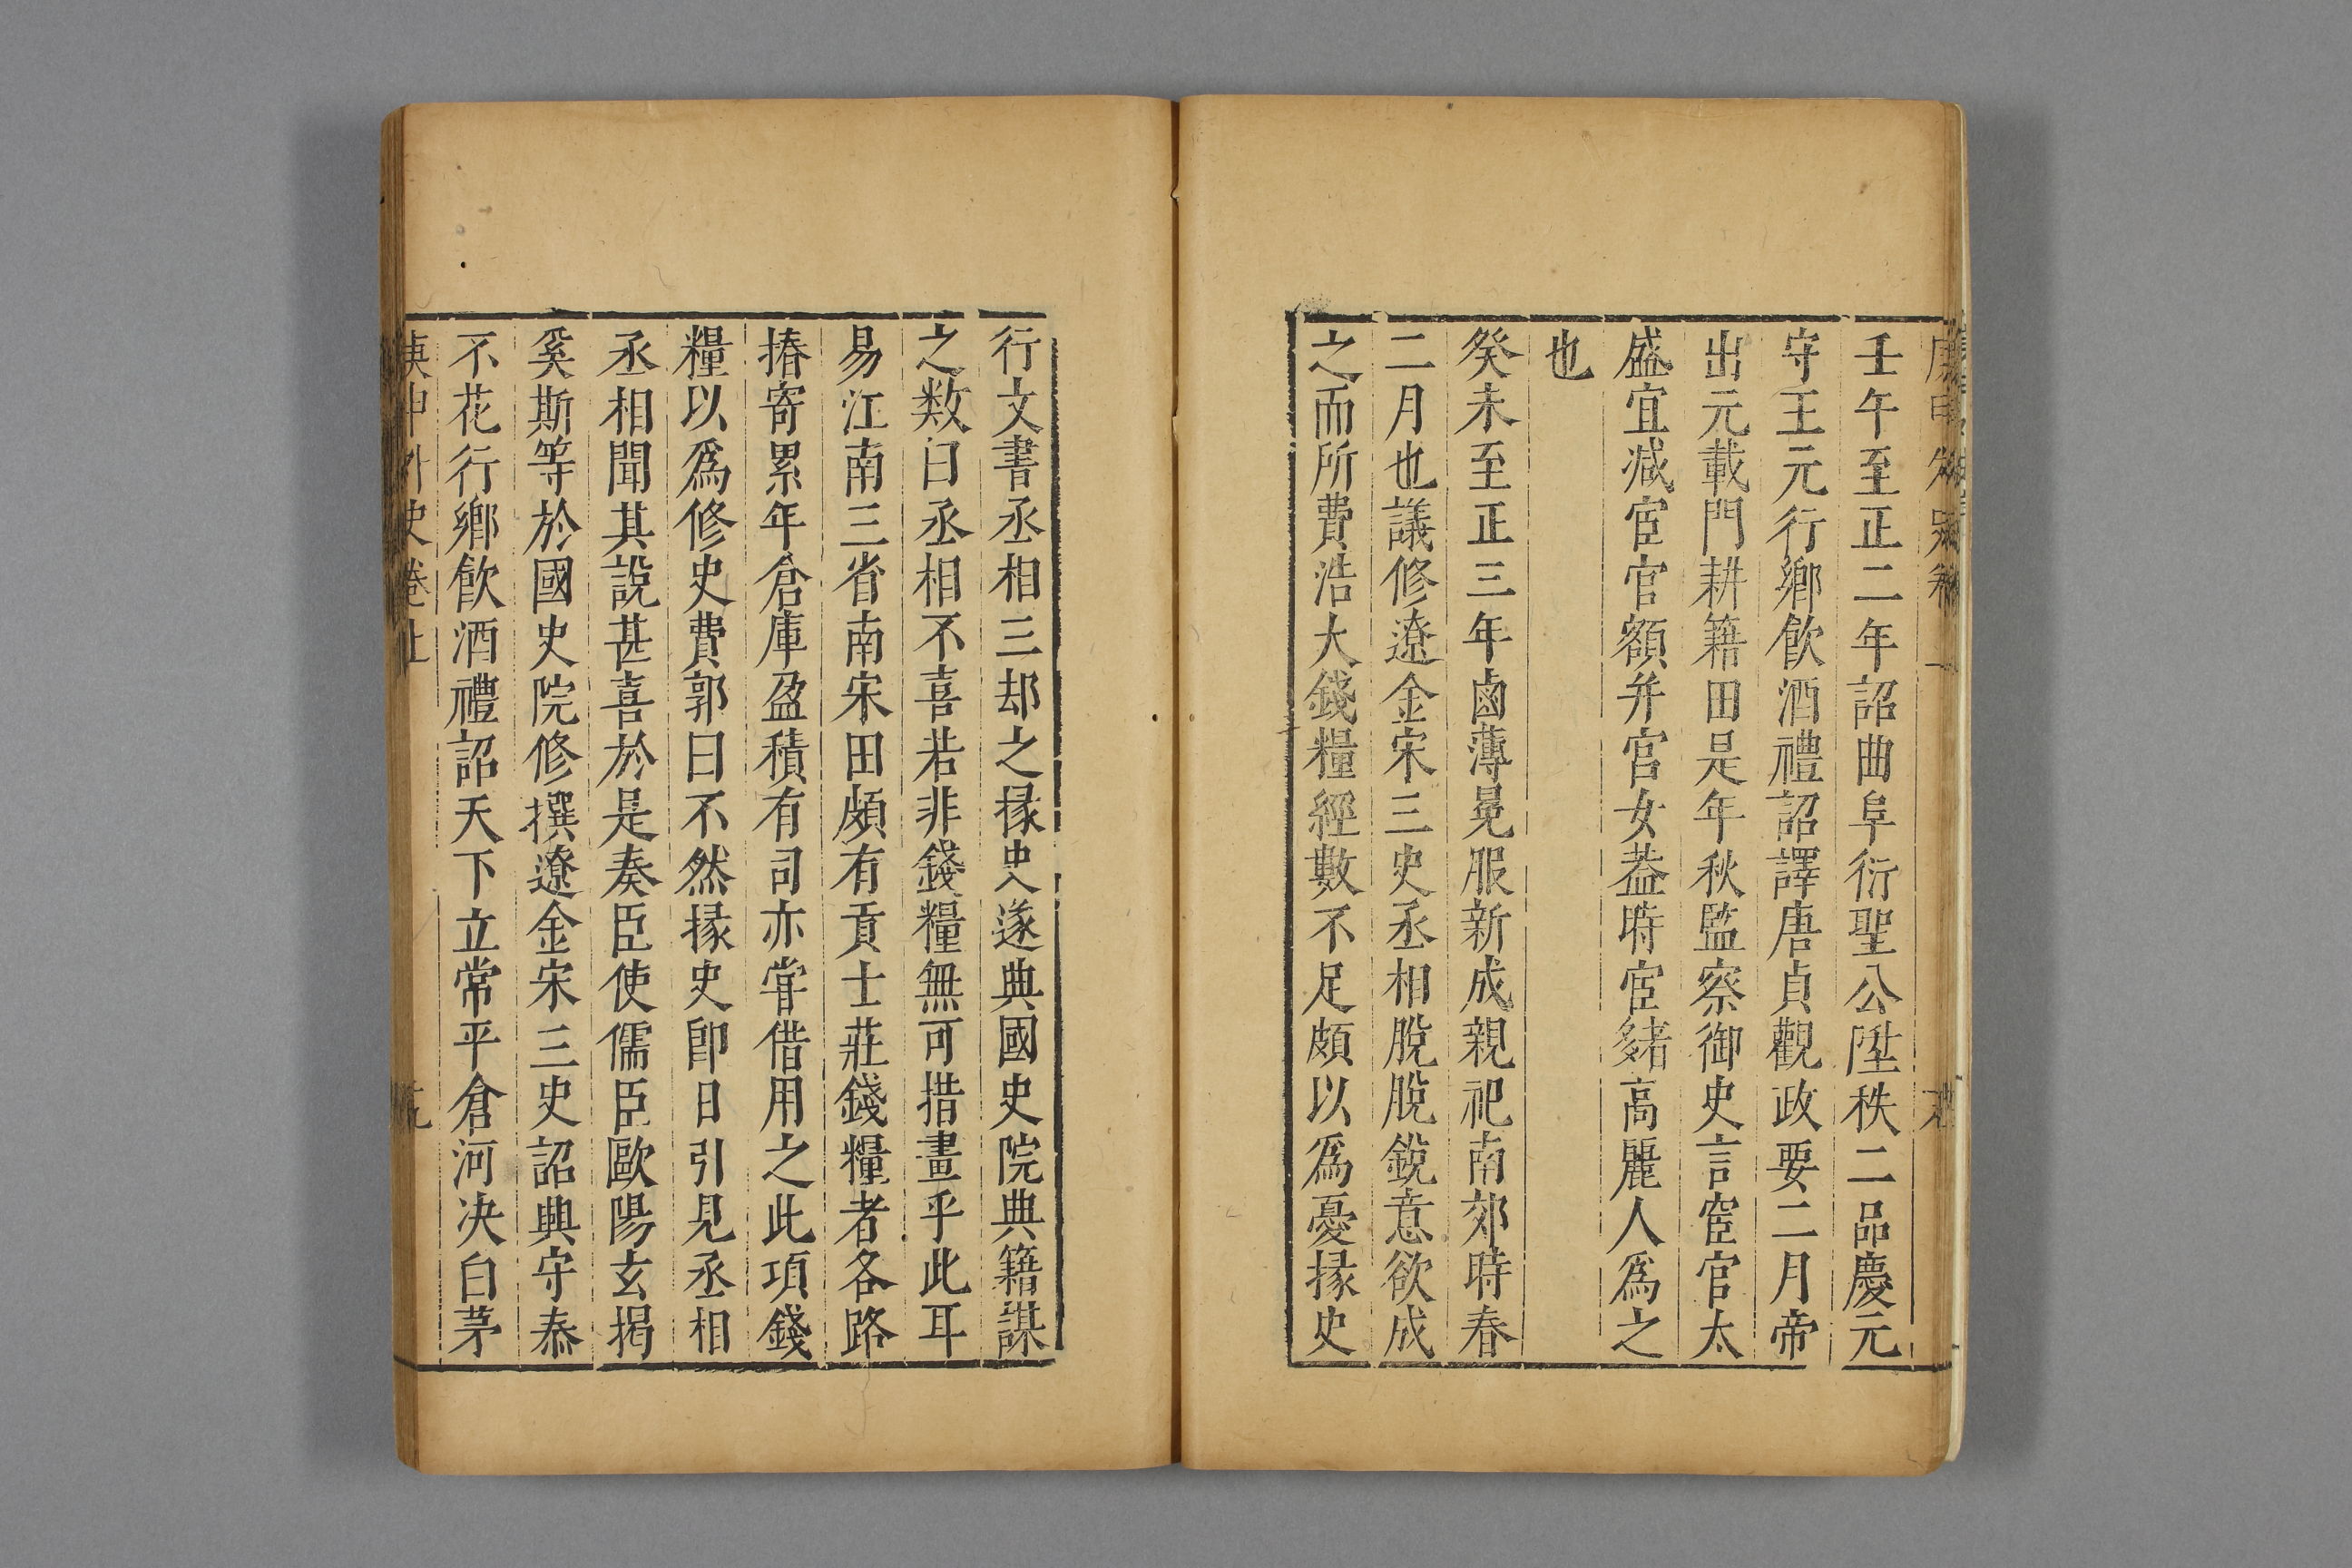 壬午至正二年詔曲阜衍聖公陞秩二品慶元
守王元行鄉飲酒禮詔譯唐貞觀政要二月帝
出元載門耕籍田是年秋監察御史言宦官太
盛宜减宦官額并宮女葢時宦者多高麗人爲之
也
癸未至正三年鹵薄冕服新成親祀南郊時春
二月也議修遼金宋三史丞相脫脫銳意欲成
之而所費浩大錢糧經數不足頗以爲憂掾史
行文書丞相三却之掾史遂典國史院典籍謀
之数日丞相不喜若非錢糧無可措畫乎此耳
易江南三省南宋田頗有貢士莊錢糧者各路
椿寄累年倉庫盈積有司亦甞借用之此項錢
糧以爲修史費郭曰不然掾史卽日引見丞相
丞相聞其說甚喜於是奏臣使儒臣歐陽玄揭
奚斯等於國史院修撰遼金宋三史詔興守泰
不花行鄉飲酒禮詔天下立常平倉河决白茅
庚申外史卷上